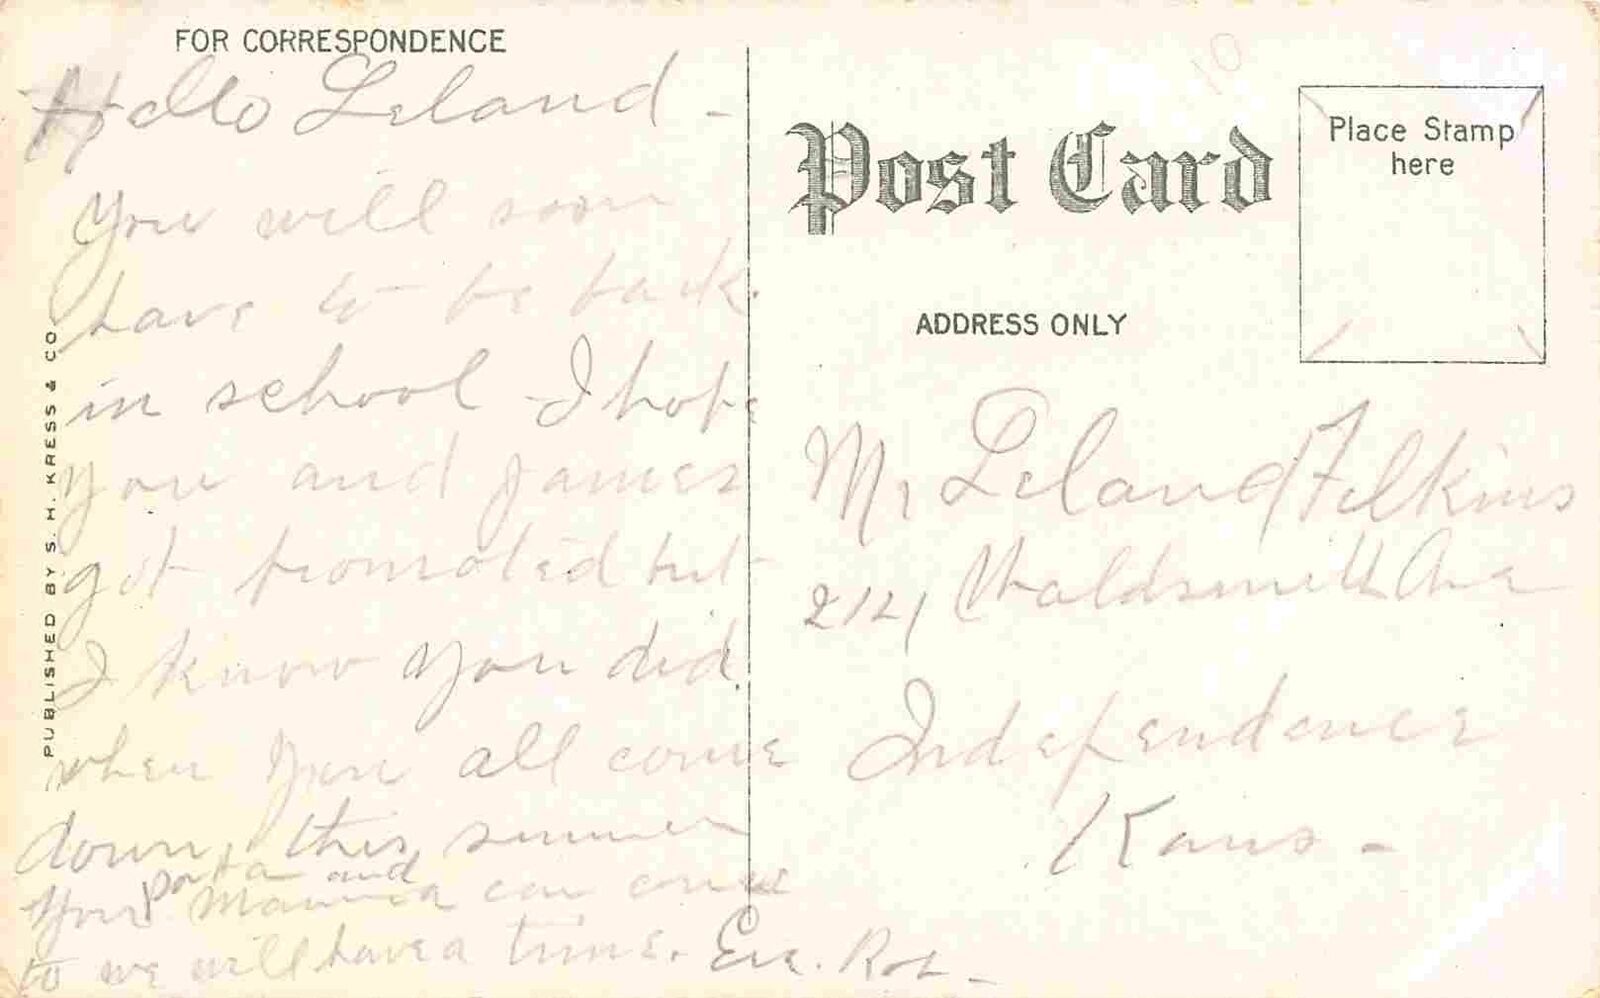 FOR CORRESPONDENCE
Hello Leland -
You will soon
have to be back
in school - I hope
you and James
got promoted but
I know you did.
when you all come
down, this summer
papa and
Your Mamma can come
to we will have a time. Eve. Rob -
PUBLISHED BY S. H. KRESS & CO
10
Post Card
Place Stamp
here
ADDRESS ONLY
Mr Leland Filkins
212, Waldsmith Ave
Independence
Kans -